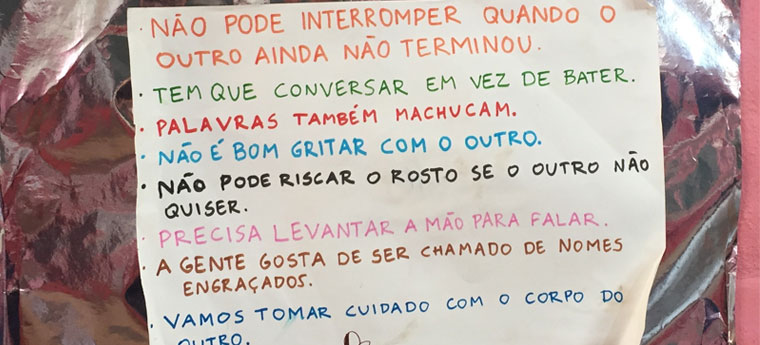 · NÃO PODE INTERROMPER QUANDO O
OUTRO AINDA NÃO TERMINOU.
· TEM QUE CONVERSAR EM VEZ DE BATER.
· PALAVRAS TAMBÉM MACHUCAM.
· NÃO É BOM GRITAR COM O OUTRO.
· NÃO PODE RISCAR O ROSTO SE O OUTRO NÃO
QUISER.
· PRECISA LEVANTAR A MÃO PARA FALAR.
· A GENTE GOSTA DE SER CHAMADO DE NOMES
ENGRAÇADOS.
· VAMOS TOMAR CUIDADO COM O CORPO DO
OUTRO.